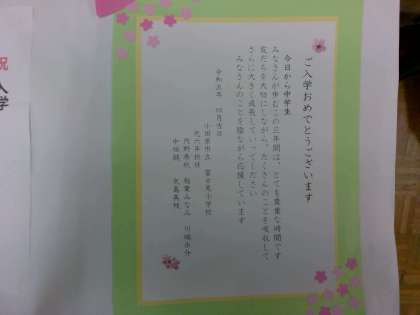 ご入学おめでとうございます
今日から中学生
みなさんが歩むこの三年間は、とても貴重な時間です
友だちを大切にしながら、たくさんのことを吸収して
さらに大きく成長していってください
みなさんのことを陰ながら応援しています
令和五年 四月吉日
小田原市立 富士見小学校
元六年担任
祝
入学